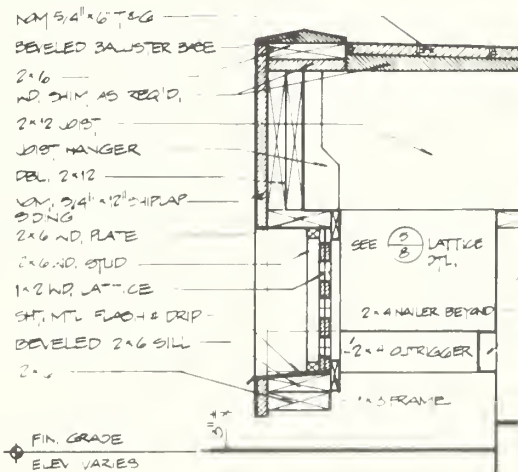 NOM 5/4" x 6" T&G
BEVELED BALUSTER BASE
2x6
WD. SHIM AS REQ'D.
2x12 JOIST
JOIST HANGER
DBL. 2x12
NOM. 5/4" x 12" SHIPLAP
SIDING
2x6 WD. PLATE
2x6 WD. STUD
1x2 WD. LATTICE
SHT. MTL FLASH & DRIP
BEVELED 2x6 SILL
SEE LATTICE
8
DTL.
2x4 NAILER BEYOND
2x4 OUTRIGGER
1x3 FRAME
FIN. GRADE
ELEV VARIES